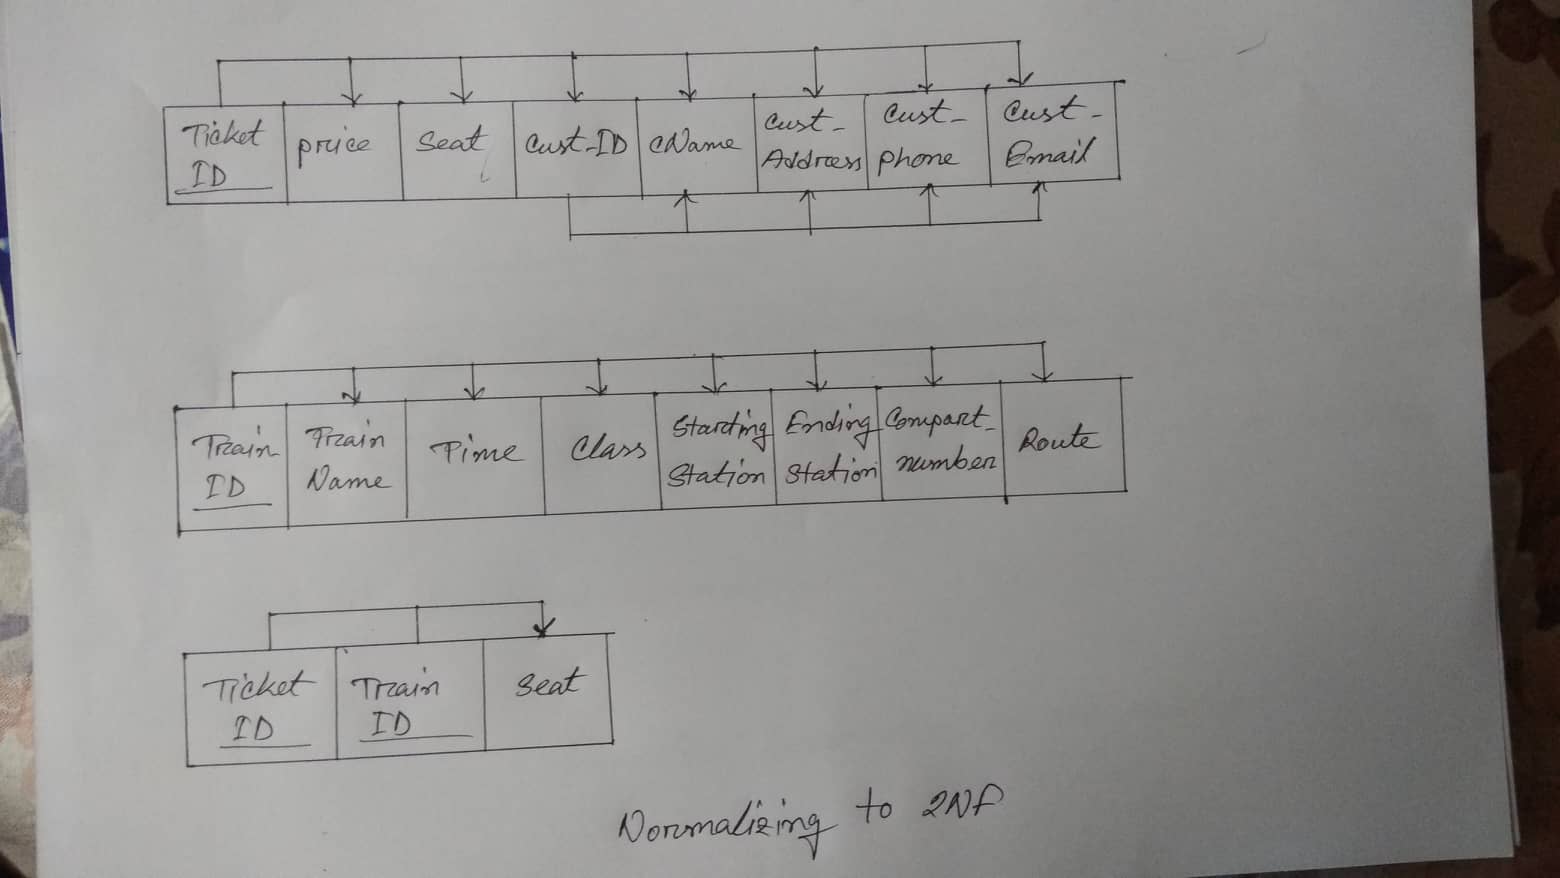 Ticket ID price Seat Cust-ID CName Cust-Address Cust-phone Cust-Email
Train ID Train Name Time Class Starting Station Ending Station Compart-number Route
Ticket ID Train ID Seat
Normalizing to 2NF